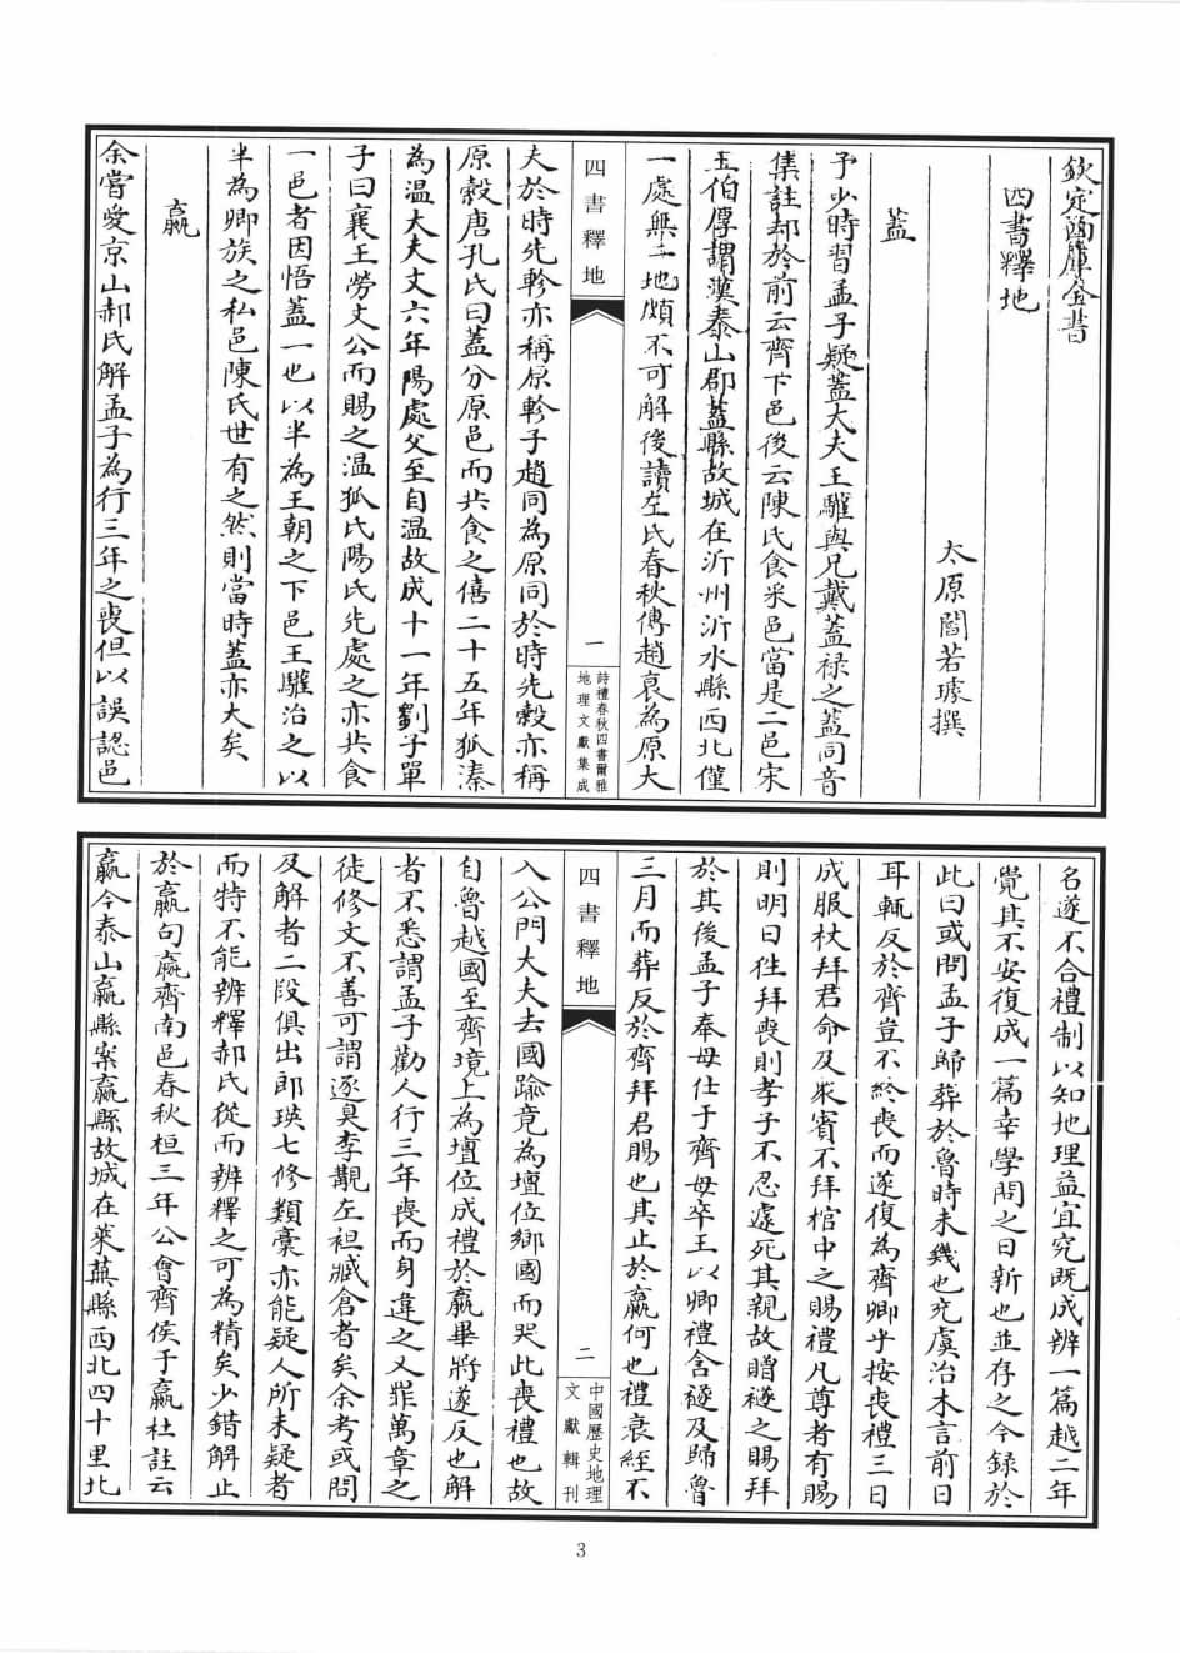 欽定四庫全書
四書釋地
太原閻若璩撰
蓋
予少時習孟子疑蓋大夫王驩與兄戴蓋祿之蓋同音
集註却於前云齊下邑後云陳氏食采邑當是二邑宋
王伯厚謂漢泰山郡蓋縣故城在沂州沂水縣西北僅
一處無二地頗不可解後讀左氏春秋傳趙衰為原大
四書釋地
一
詩禮春秋四書爾雅
地理文獻集成
夫於時先軫亦稱原軫子趙同為原同於時先縠亦稱
原縠唐孔氏曰蓋分原邑而共食之僖二十五年狐溱
為温大夫文六年陽處父至自温故成十一年劉子單
子曰襄王勞文公而賜之温狐氏陽氏先處之亦共食
一邑者因悟蓋一也以半為王朝之下邑王驩治之以
半為卿族之私邑陳氏世有之然則當時蓋亦大矣
嬴
余嘗愛京山郝氏解孟子為行三年之喪但以誤認邑
名遂不合禮制以知地理益宜究既成辨一篇越二年
覺其不安復成一篇幸學問之日新也並存之今錄於
此曰或問孟子歸葬於魯時未幾也充虞治木言前日
耳輒反於齊豈不終喪而遂復為齊卿乎按喪禮三日
成服杖拜君命及衆賓不拜棺中之賜禮凡尊者有賜
則明日往拜喪則孝子不忍遽死其親故贈襚之賜拜
於其後孟子奉母仕于齊母卒王以卿禮含襚及歸魯
三月而葬反於齊拜君賜也其止於嬴何也禮衰絰不
四書釋地
二
中國歷史地理
文獻輯刊
入公門大夫去國踰竟為壇位鄉國而哭此喪禮也故
自魯越國至齊境上為壇位成禮於嬴畢將遂反也解
者不悉謂孟子勸人行三年喪而身違之又罪萬章之
徒修文不善可謂逐臭李觀左袒臧倉者矣余考或問
及解者二段俱出郎瑛七修類稾亦能疑人所未疑者
而特不能辨釋郝氏從而辨釋之可為精矣少錯解止
於嬴句嬴齊南邑春秋桓三年公會齊侯于嬴杜註云
嬴今泰山嬴縣案嬴縣故城在萊蕪縣西北四十里北
3